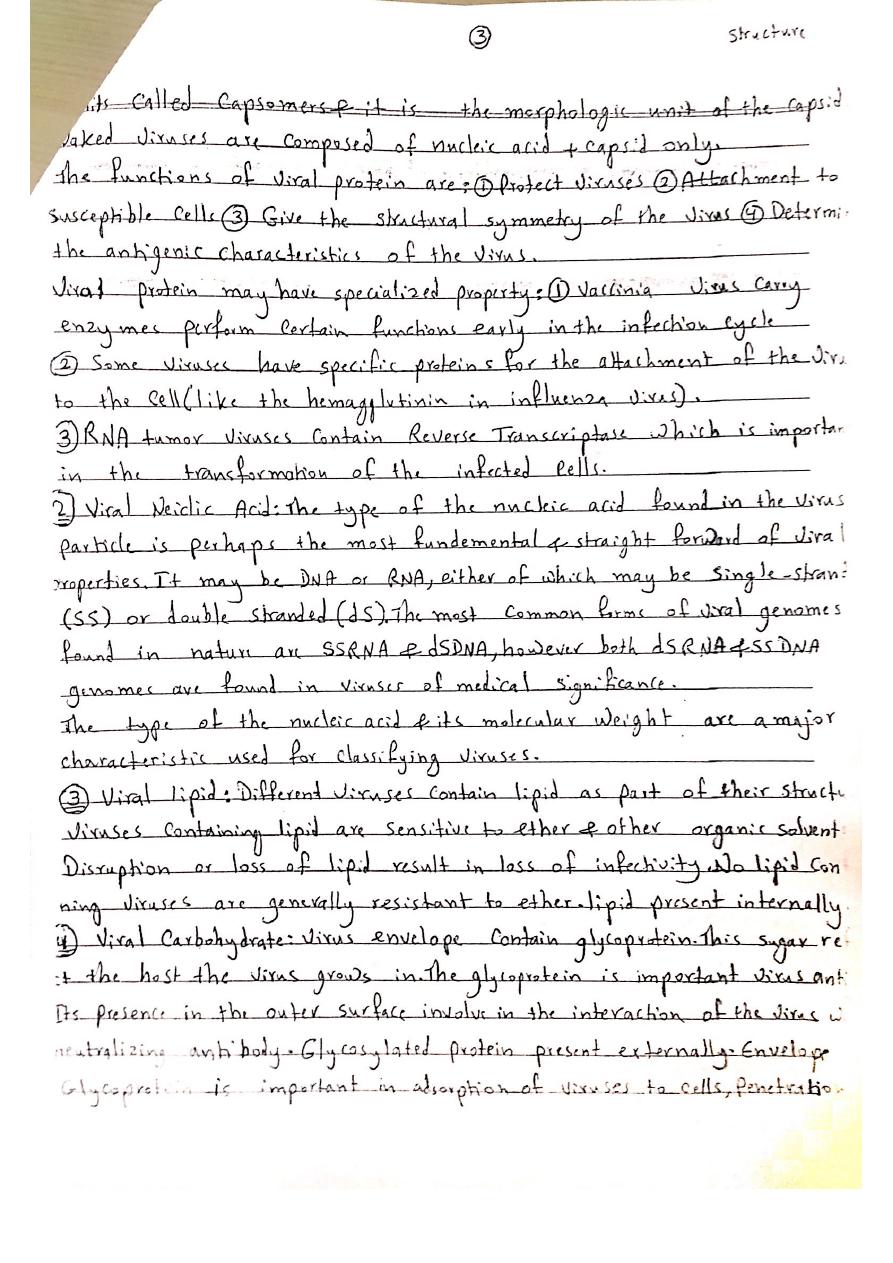 ③ Structure
its Called Capsomers & it is the morphologic unit of the capsid
Naked Viruses are Composed of nucleic acid + capsid only.
The functions of Viral protein are: ① Protect Viruses ② Attachment to
Susceptible Cells ③ Give the structural symmetry of the Virus ④ Determi
the antigenic characteristics of the Virus.
Viral protein may have specialized property: ① Vaccinia Virus Carey
enzymes perform Certain functions early in the infection cycle
② Some Viruses have specific proteins for the attachment of the Vir
to the Cell (like the hemagglutinin in influenza Virus).
③ RNA tumor Viruses Contain Reverse Transcriptase which is importan
in the transformation of the infected Cells.
2) Viral Neiclic Acid: The type of the nucleic acid found in the Virus
Particle is perhaps the most fundemental & straight forward of Viral
properties. It may be DNA or RNA, either of which may be Single-stran
(SS) or double Stranded (dS). The most Common forms of Viral genomes
found in nature are SSRNA & dSDNA, however both dSRNA & SSDNA
genomes are found in Viruses of medical significance.
The type of the nucleic acid & its molecular Weight are a major
characteristic used for classifying Viruses.
③ Viral lipid: Different Viruses Contain lipid as part of their Structu
Viruses Containing lipid are Sensitive to ether & other organic Solvent
Disruption or loss of lipid result in loss of infectivity. No lipid Con
ning Viruses are generally resistant to ether. lipid present internally
4) Viral Carbohydrate: Virus envelope Contain glycoprotein. This Sugar re
t the host the Virus grows in. The glycoprotein is important Virus ant
Its presence in the outer surface involve in the interaction of the Virus w
neutralizing antibody. Glycosylated Protein present externally. Envelope
Glycoprotein is important in adsorption of Viruses to Cells, Penetratio